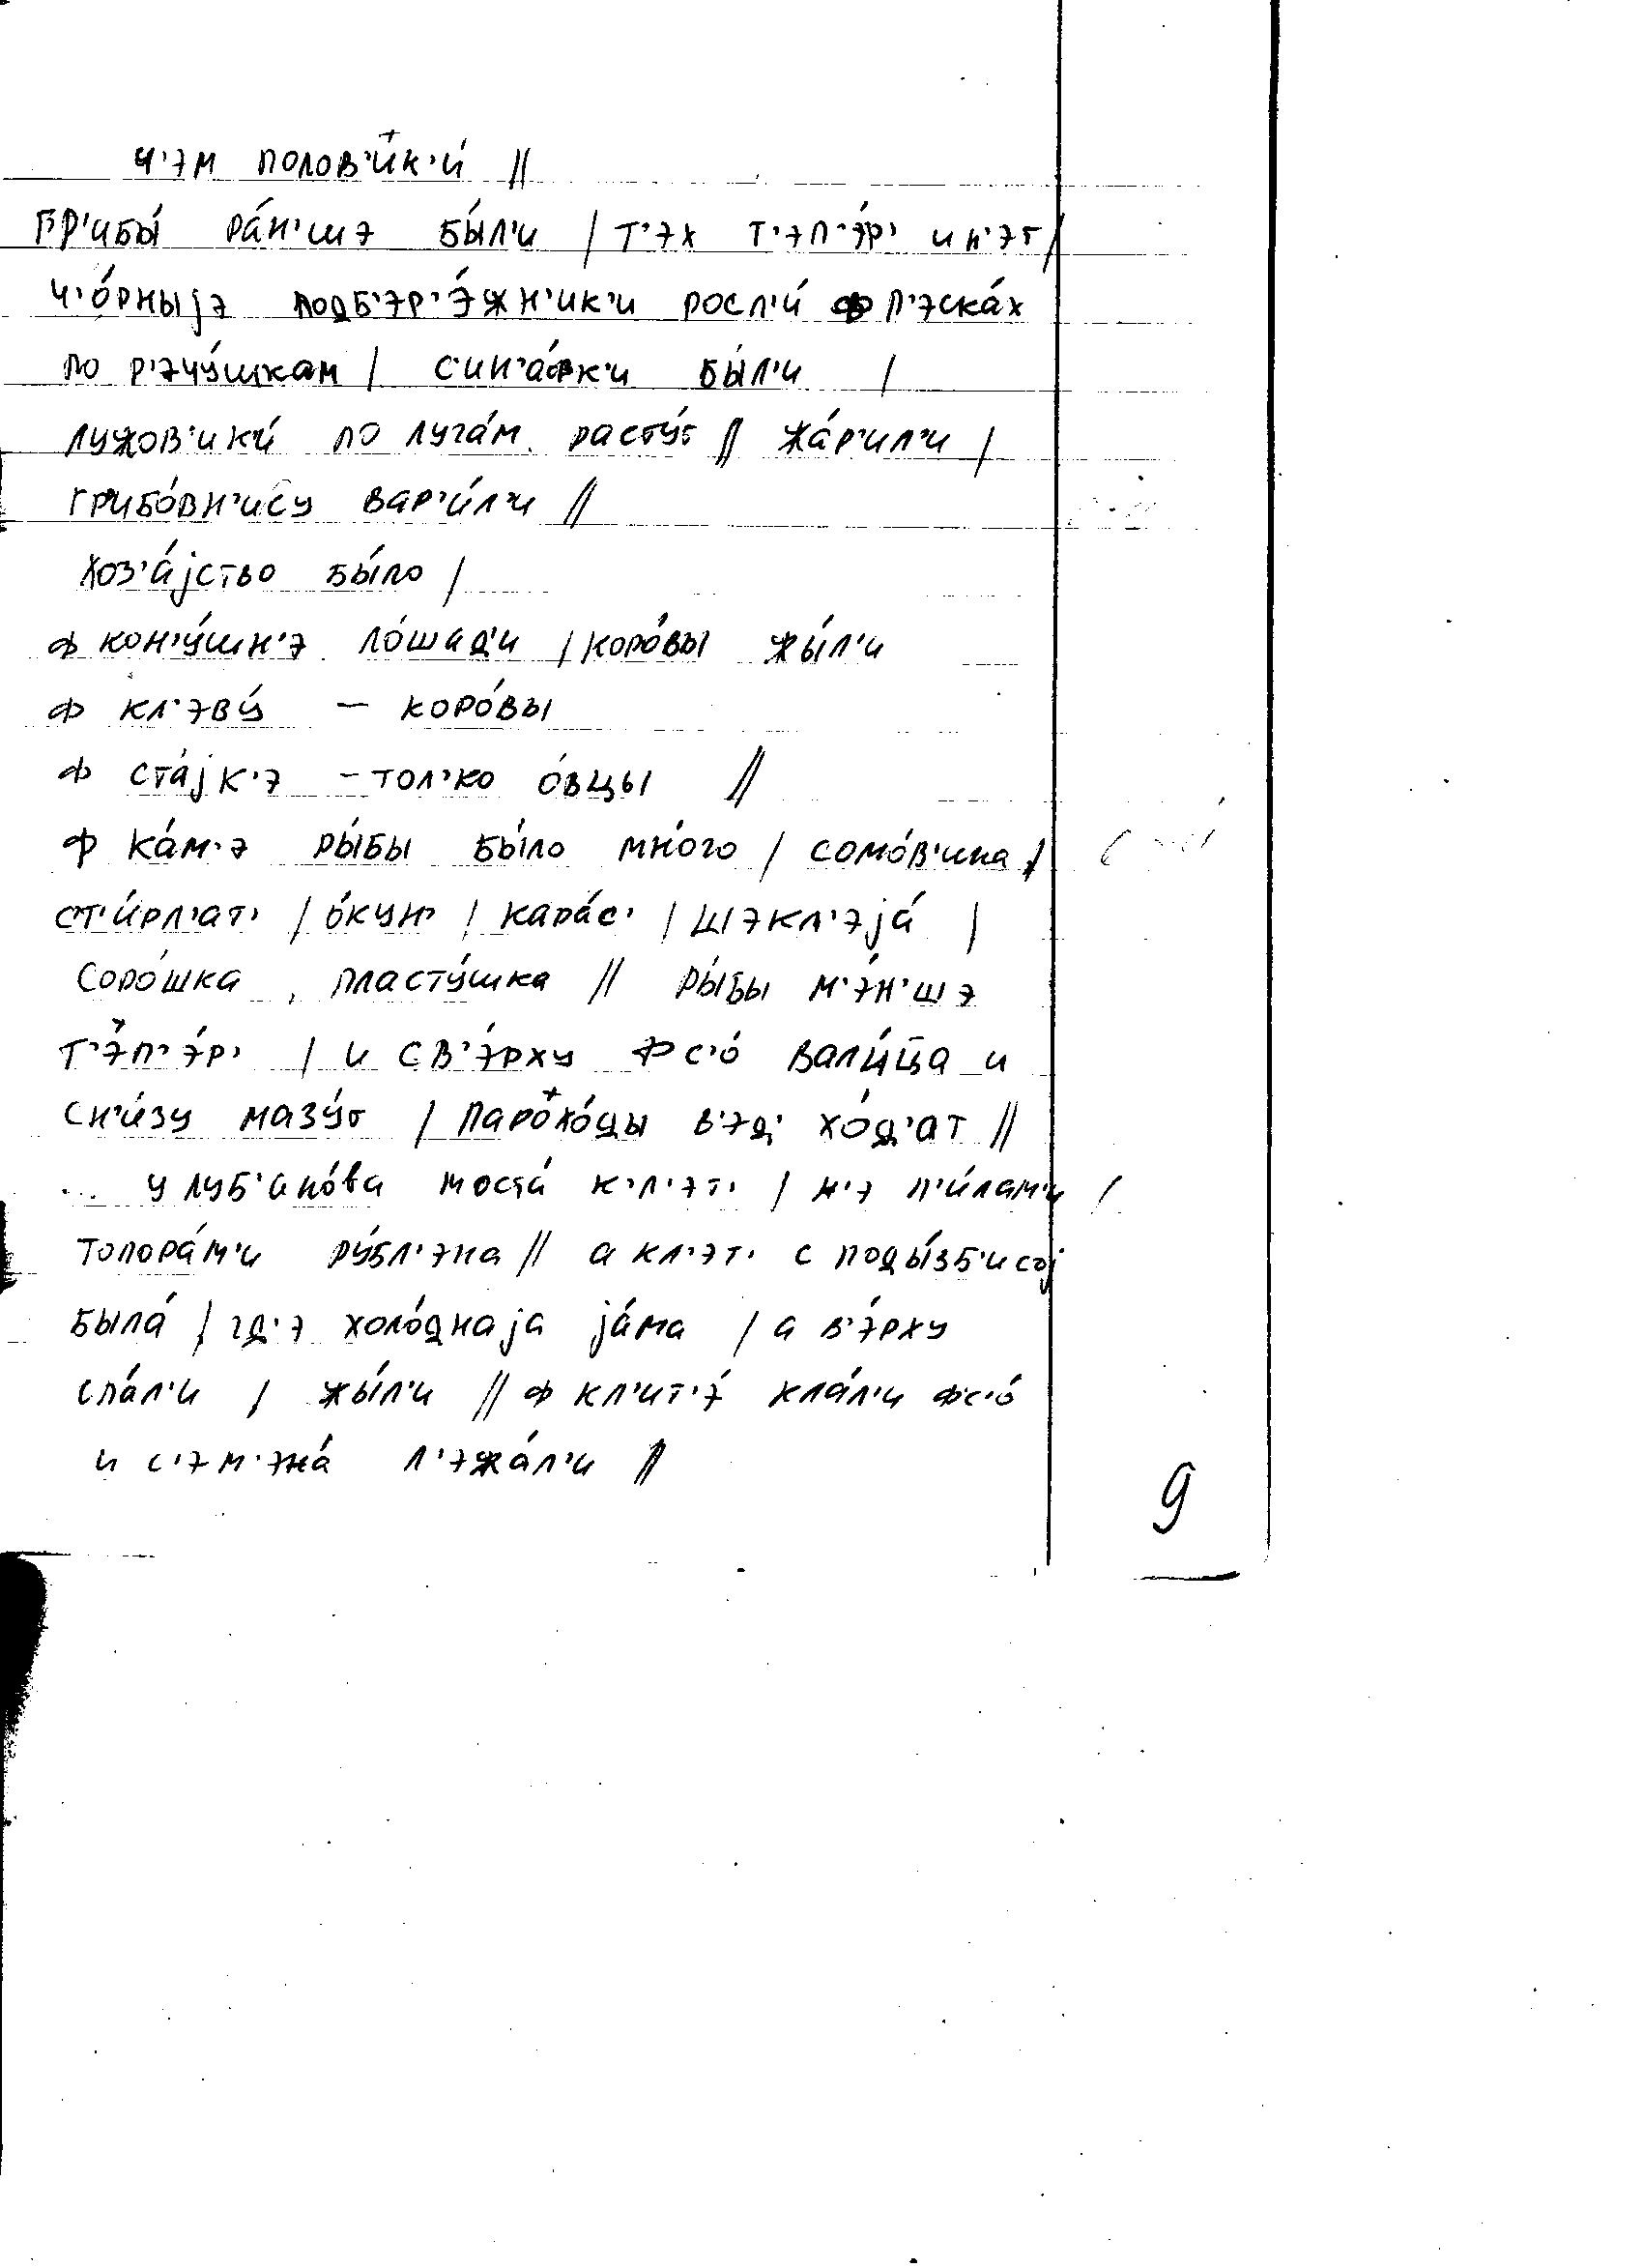 ч'эм полов'ик'и́ //
гр'ибы́ ра́н'шэ бы́л'и / т'эх т'эп'э́р' и н'эт /
ч'о́рныjэ подб'эр'э́жн'ик'и росл'и́ ф п'эска́х
по р'эчу́шкам / с'ин'а́фк'и бы́л'и /
лужов'ики́ по луга́м расту́т // жа́р'ил'и /
грибо́вн'ису вар'и́л'и //
хоз'а́jство бы́ло /
ф кон'у́шн'э ло́шад'и / коро́вы жы́л'и
ф кл'эву́ – коро́вы
ф ста́jк'э – тол'ко о́вцы //
ф ка́м'э ры́бы бы́ло мно́го / сомо́в'ина /
ст'и́рл'ат' / о́кун' / кара́с' / шэкл'эjа́ /
соро́шка, пласту́шка // ры́бы м'э́н'шэ
т'эп'э́р' / и св'э́рху фс'о́ вали́ца и
сн'и́зу мазу́т / парохо́ды в'эд' хо́д'ат //
... у луб'ано́ва моста́ к'л'эт' / н'э п'и́лам'и /
топора́м'и ру́бл'эна // а кл'эт' с поды́зб'исоj
была́ / гд'э холо́днаjа jа́ма / а в'э́рху
спа́л'и / жы́л'и // ф кл'ит'э́ кла́л'и фс'о́
и с'эм'эна́ л'эжа́л'и //
9